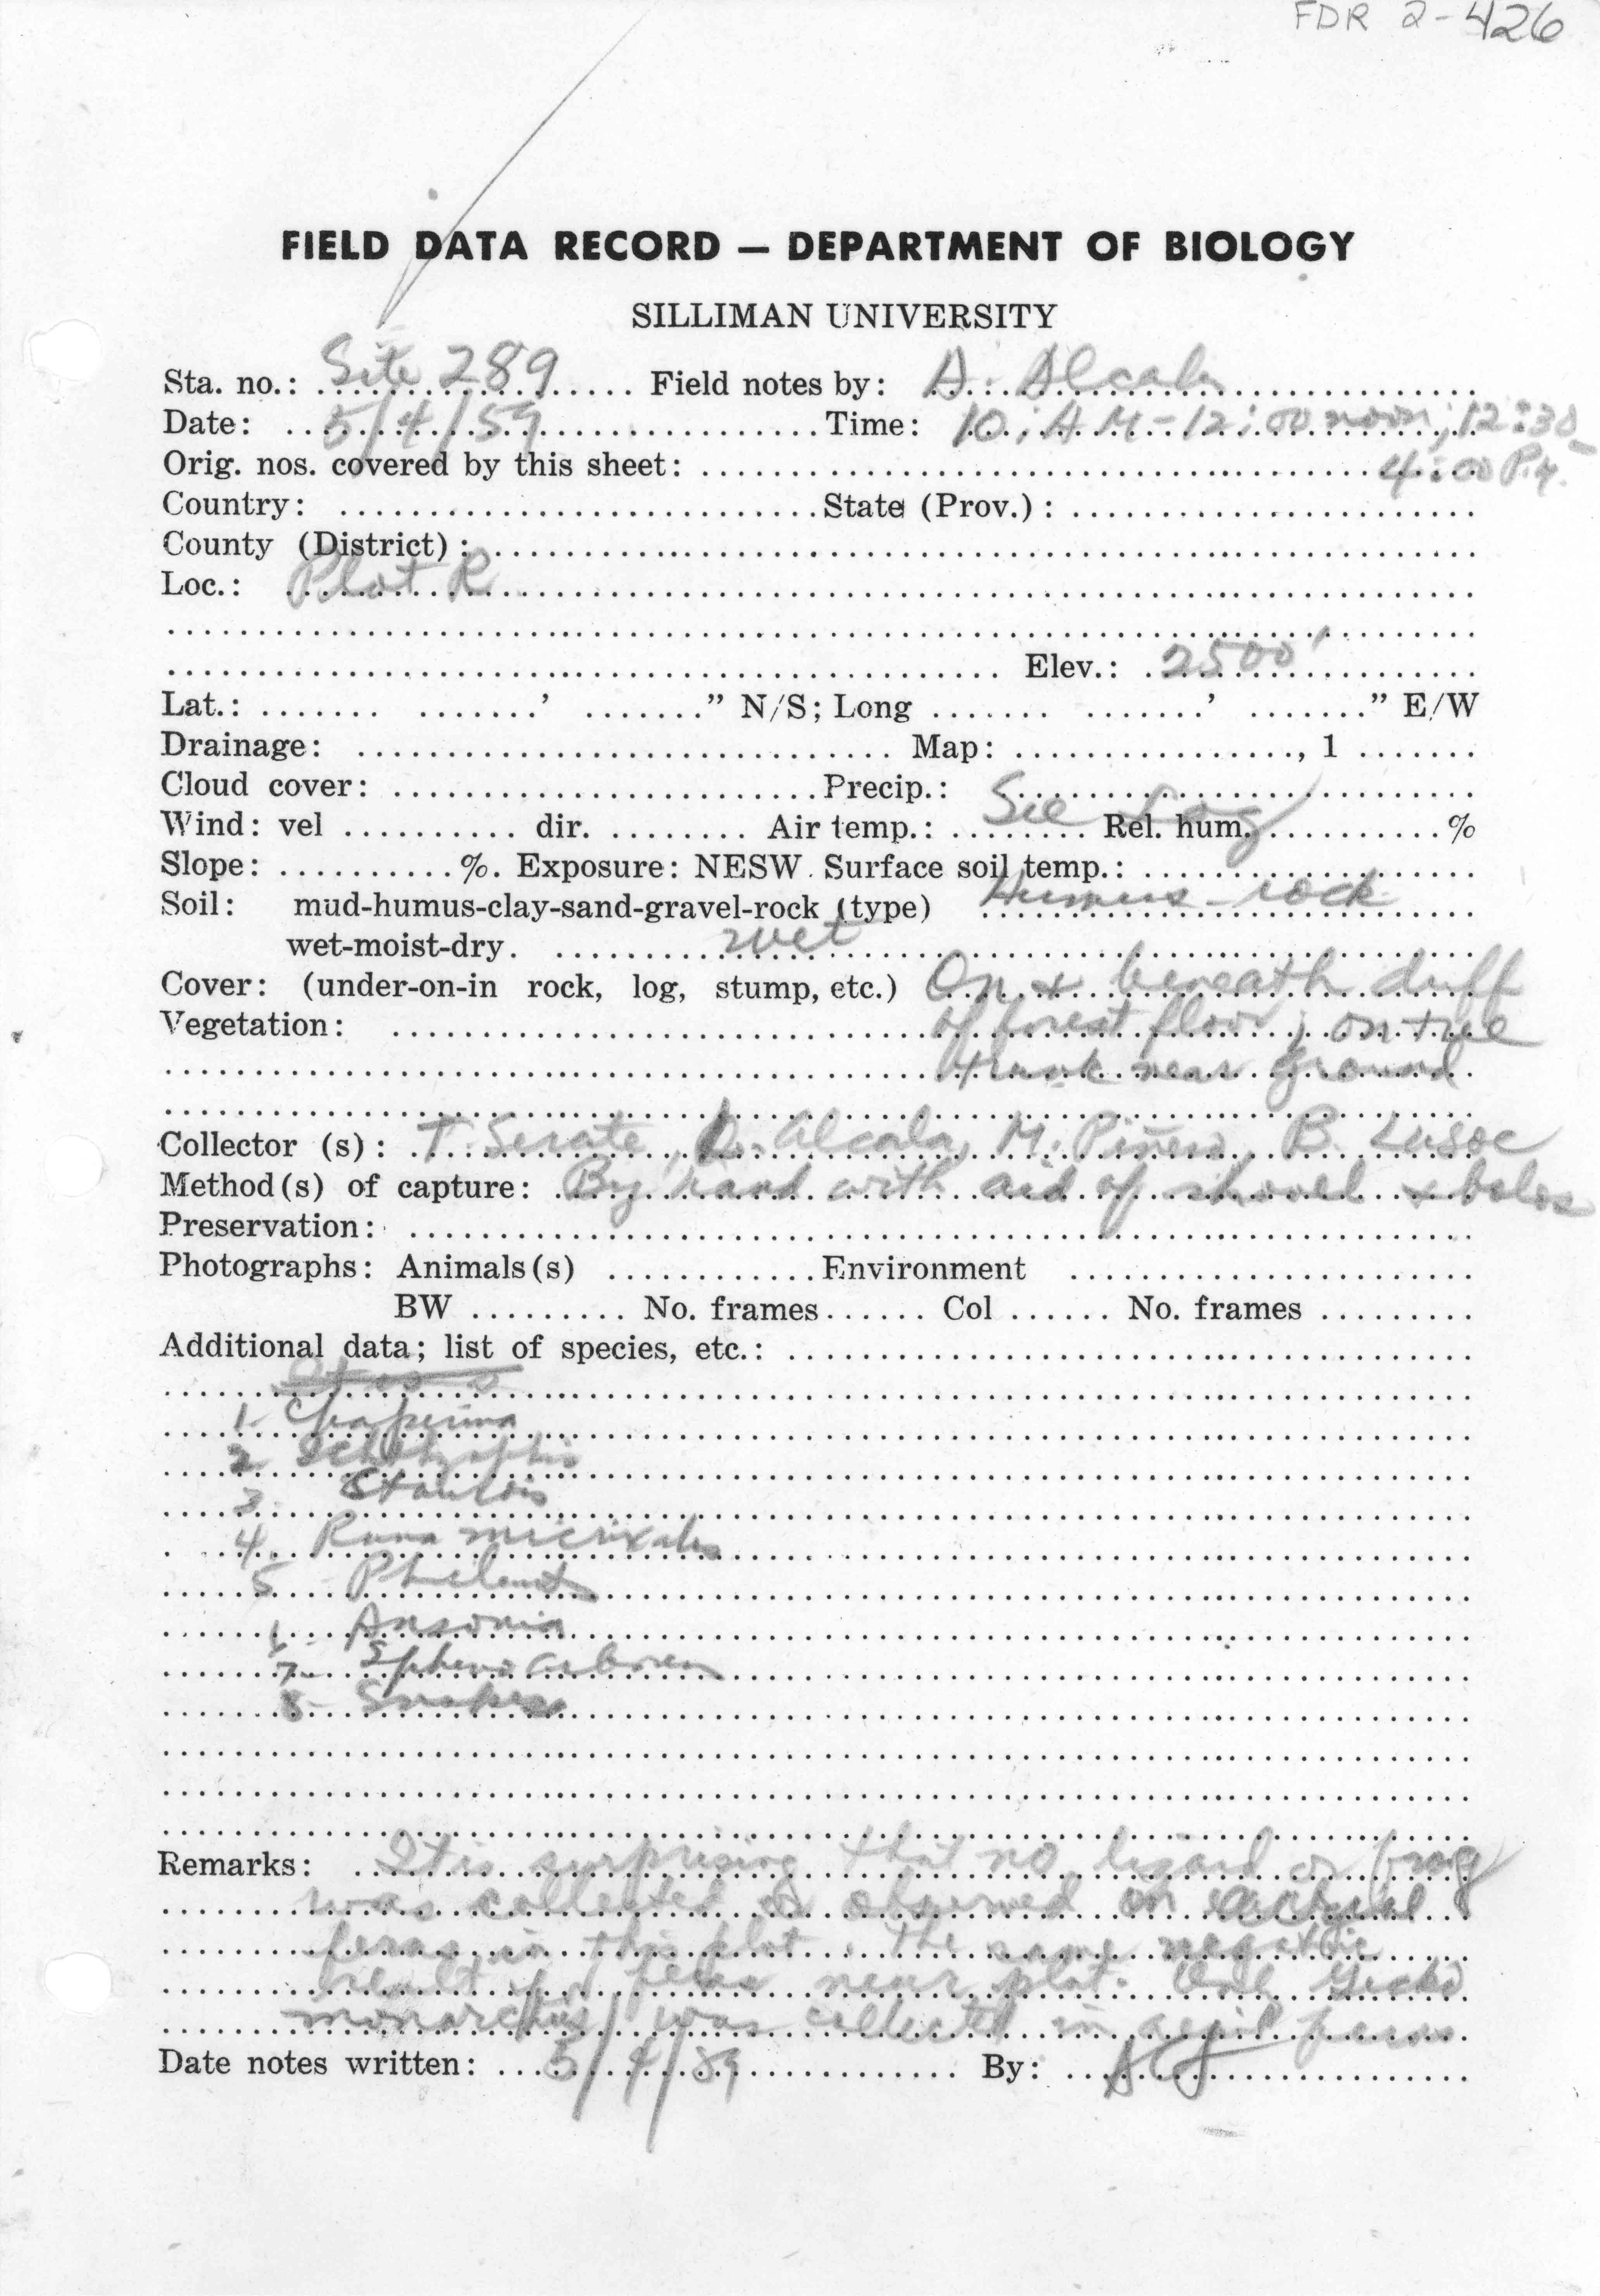 FDR 2-426
FIELD DATA RECORD — DEPARTMENT OF BIOLOGY
SILLIMAN UNIVERSITY
Sta. no.: Site 289 Field notes by: A. Alcala
Date: 5/4/59 Time: 10: A M - 12:00 noon; 12:30-
Orig. nos. covered by this sheet: 4:00 P.M.
Country: State (Prov.):
County (District):
Loc.: Plot R
Elev.: 2500'
Lat.: ' " N/S; Long ' " E/W
Drainage: Map: , 1
Cloud cover: Precip.: See Log
Wind: vel dir. Air temp.: Rel. hum. %
Slope: %. Exposure: NESW. Surface soil temp.:
Soil: mud-humus-clay-sand-gravel-rock (type) Humus - rock
wet-moist-dry. wet
Cover: (under-on-in rock, log, stump, etc.) On & beneath duff
Vegetation: of forest floor; on tree
trunk near ground
Collector (s): T. Serate, A. Alcala, M. Piñero, B. Lusoc
Method(s) of capture: By hand with aid of shovel & bolos
Preservation:
Photographs: Animals(s) Environment
BW No. frames Col No. frames
Additional data; list of species, etc.:
1. Chaperina
2. Ichthyophis
3. Staurois
4. Rana microxalus
5 - Philautus
6 - Ansonia
7 - Spheno
8 - Snakes
Remarks: It is surprising that no lizard or frog
was collected or observed on aerial
ferns in this plot. The same negative
result for ferns near plot. One Gecko
monarchus was collected in aerial ferns
Date notes written: 5/4/59 By: ACA